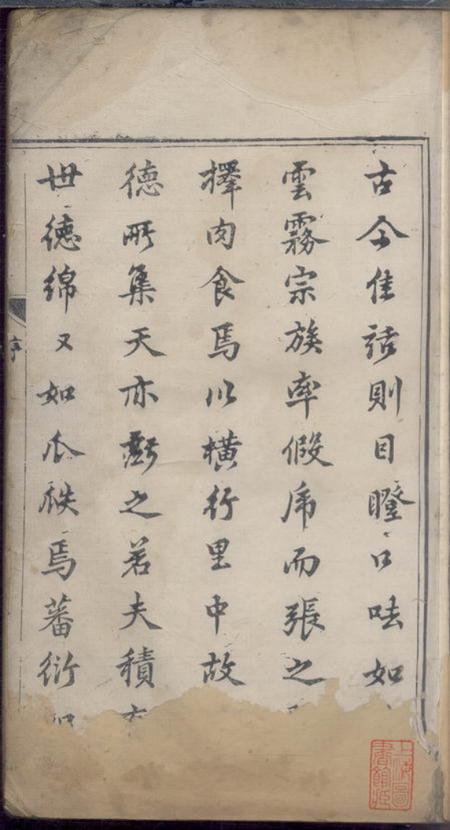 古今佳話則目瞪口呿如
雲霧宗族率假虎而張之
擇肉食焉以橫行里中故
德所集天亦爵之若夫積
世德綿又如瓜瓞焉蕃衍
序
上海圖書館藏